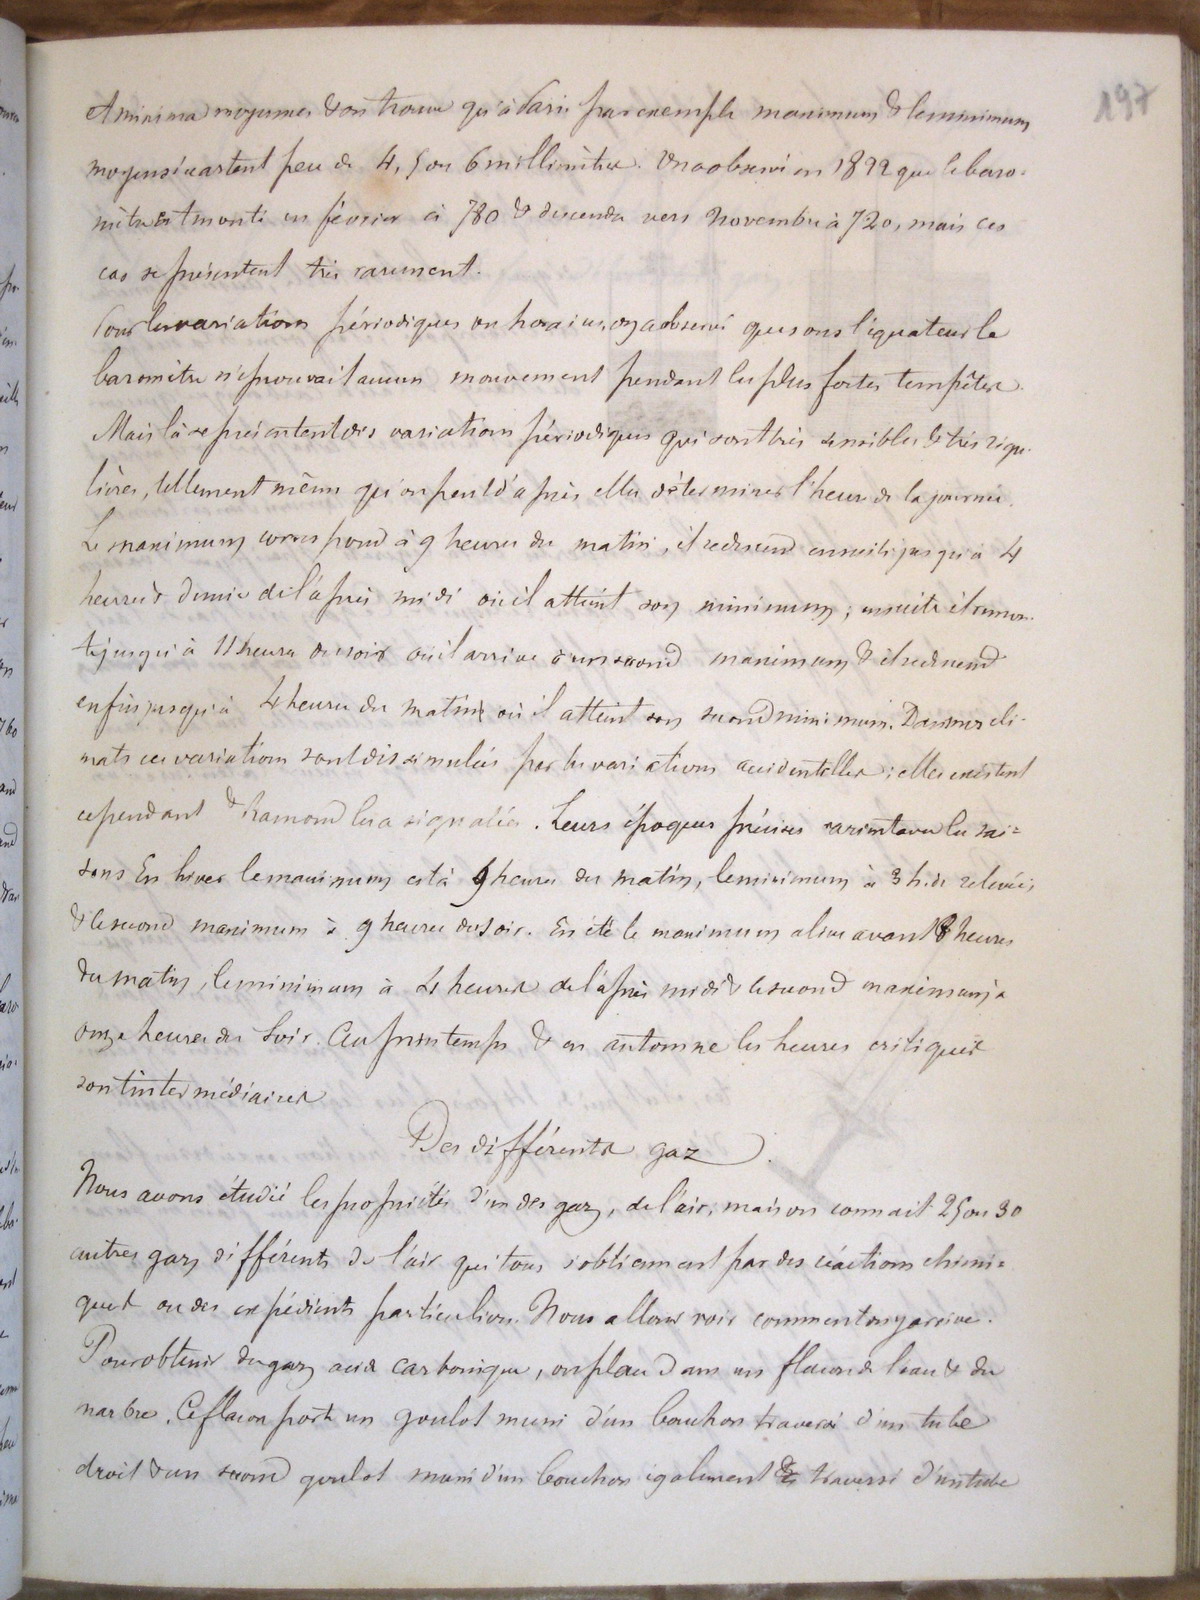 197
& minima moyennes & on trouve qu'à Paris par exemple maximum & le minimum
moyens s'écartent peu de 4, 5 ou 6 millimètres. On a observé en 1822 que le baro-
mètre est monté en février à 780 & descendu vers Novembre à 720, mais ces
cas se présentent très rarement.
Pour les variations périodiques ou horaires, on a observé que sous l'équateur le
baromètre n'éprouvait aucun mouvement pendant les plus fortes tempêtes.
Mais là se présentent des variations périodiques qui sont très sensibles & très régu-
lières, tellement même qu'on peut d'après elles déterminer l'heure de la journée.
Le maximum correspond à 9 heures du matin, il redescend ensuite jusqu'à 4
heures & demie de l'après midi où il atteint son minimum ; ensuite il remon-
te jusqu'à 11 heures du soir où il arrive à un second maximum & il redescend
enfin jusqu'à 4 heures du matin où il atteint son second minimum. Dans nos cli-
mats ces variations sont dissimulées par les variations accidentelles ; elles existent
cependant & Ramond les a signalées. Leurs époques précises varient avec les sai=
sons En hiver le maximum est à 9 heures du matin, le minimum à 3 h. de relevée,
& le second maximum à 9 heures du soir. En été le maximum a lieu avant 8 heures
du matin, le minimum à 4 heures de l'après midi & le second maximum à
onze heures du soir. Au printemps & en automne les heures critiques
sont intermédiaires
Des différents gaz.
Nous avons étudié les propriétés d'un des gaz, de l'air, mais on connait 25 ou 30
autres gaz différents de l'air qui tous s'obtiennent par des réactions chimi=
ques ou des expédients particuliers. Nous allons voir comment on y arrive.
Pour obtenir du gaz acide carbonique, on place dans un flacon de l'eau & du
marbre. Ce flacon porte un goulot muni d'un bouchon traversé d'un tube
droit & un second goulot muni d'un bouchon également traversé d'un tube